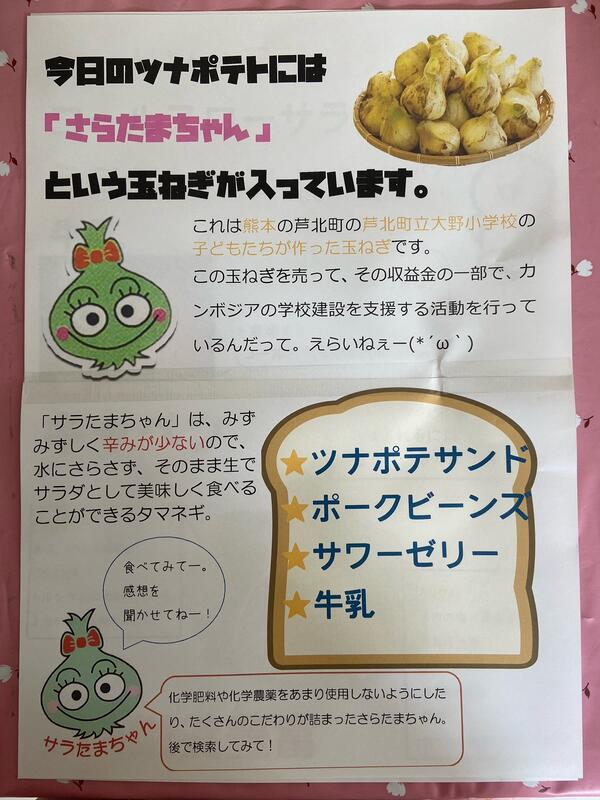 今日のツナポテトには
「さらたまちゃん」
という玉ねぎが入っています。
これは熊本の芦北町の芦北町立大野小学校の
子どもたちが作った玉ねぎです。
この玉ねぎを売って、その収益金の一部で、カ
ンボジアの学校建設を支援する活動を行って
いるんだって。えらいねぇー(*´ω｀)
「サラたまちゃん」は、みず
みずしく辛みが少ないので、
水にさらさず、そのまま生で
サラダとして美味しく食べる
ことができるタマネギ。
⭐ツナポテサンド
⭐ポークビーンズ
⭐サワーゼリー
⭐牛乳
食べてみてー。
感想を
聞かせてねー！
サラたまちゃん
化学肥料や化学農薬をあまり使用しないようにした
り、たくさんのこだわりが詰まったさらたまちゃん。
後で検索してみて！